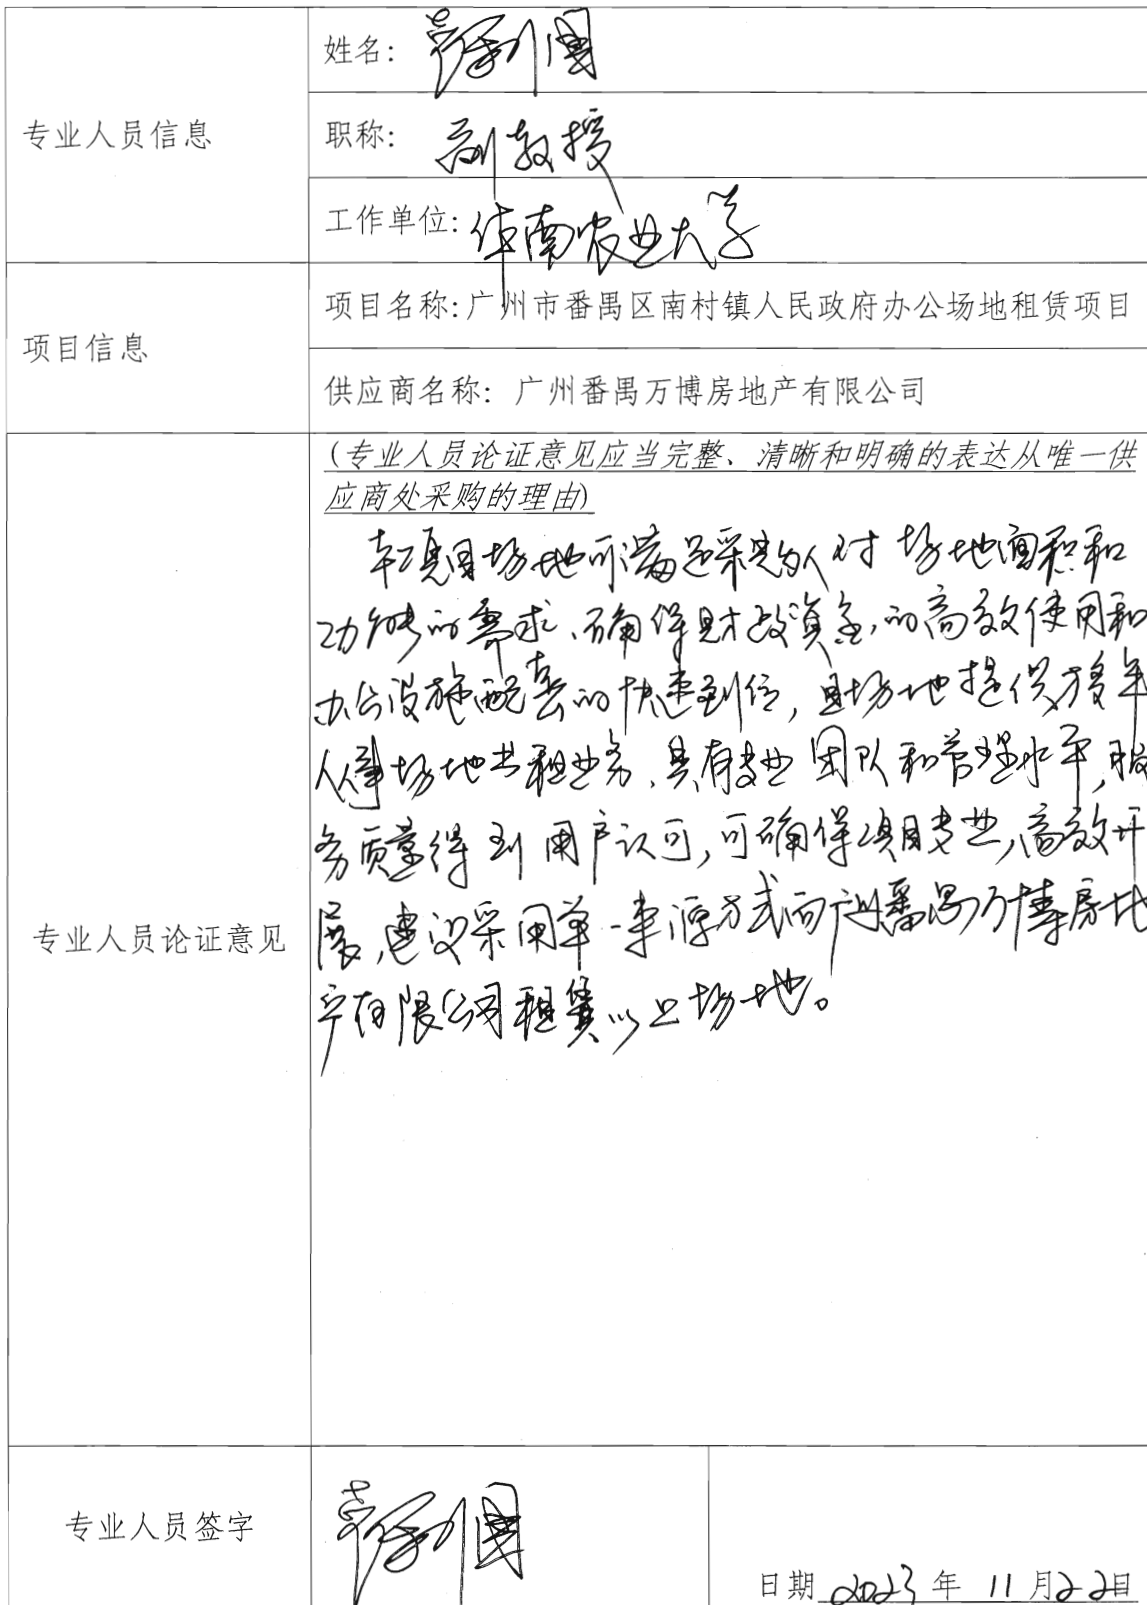 姓名：
职称：副教授
专业人员信息
工作单位：华南农业大学
项目名称：广州市番禺区南村镇人民政府办公场地租赁项目
项目信息
供应商名称：广州番禺万博房地产有限公司
（专业人员论证意见应当完整、清晰和明确的表达从唯一供
应商处采购的理由）
本项目场地可满足采购人对场地面积和
功能的需求、确保财政资金的高效使用和
办公设施配套的快速到位，且场地提供方多年
从事场地出租业务、具有专业团队和管理水平，服
务质量得到用户认可，可确保项目专业、高效开
展，建议采用单一来源方式向广州番禺万博房地
产有限公司租赁以上场地。
专业人员论证意见
专业人员签字
日期 2023 年 11 月 22 日